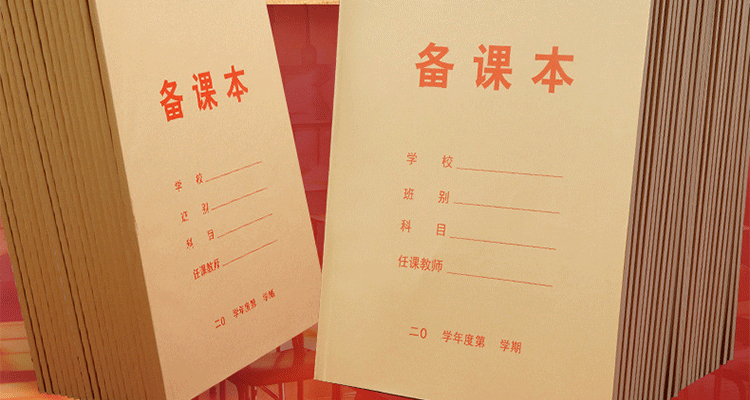 备课本
学 校
班 别
科 目
任课教师
二0 学年度第 学期
备课本
学 校
班 别
科 目
任课教师
二0 学年度第 学期